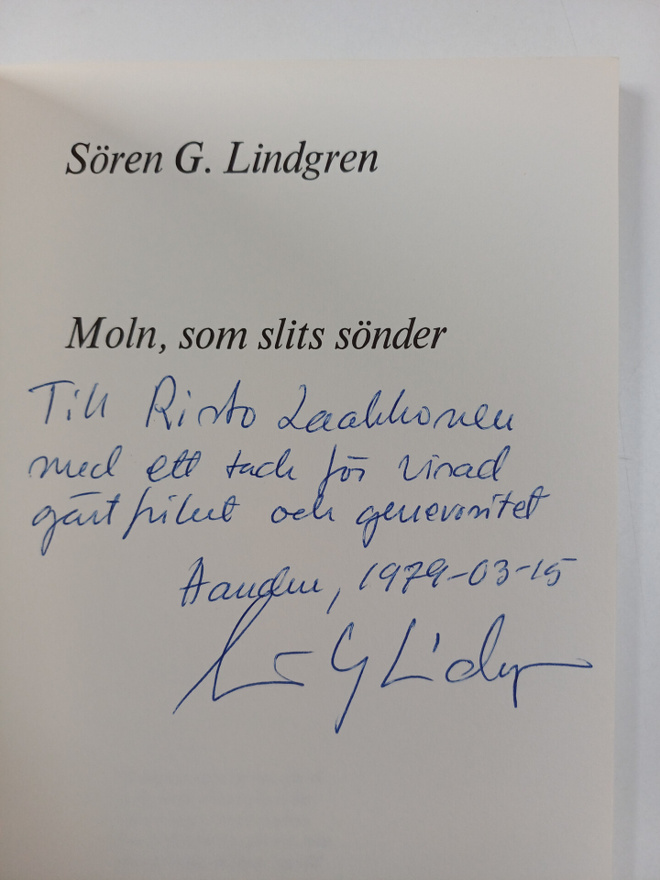 Sören G. Lindgren
Moln, som slits sönder
Till Risto Laakkonen
med ett tack för visad
gästfrihet och generositet
1979-03-15